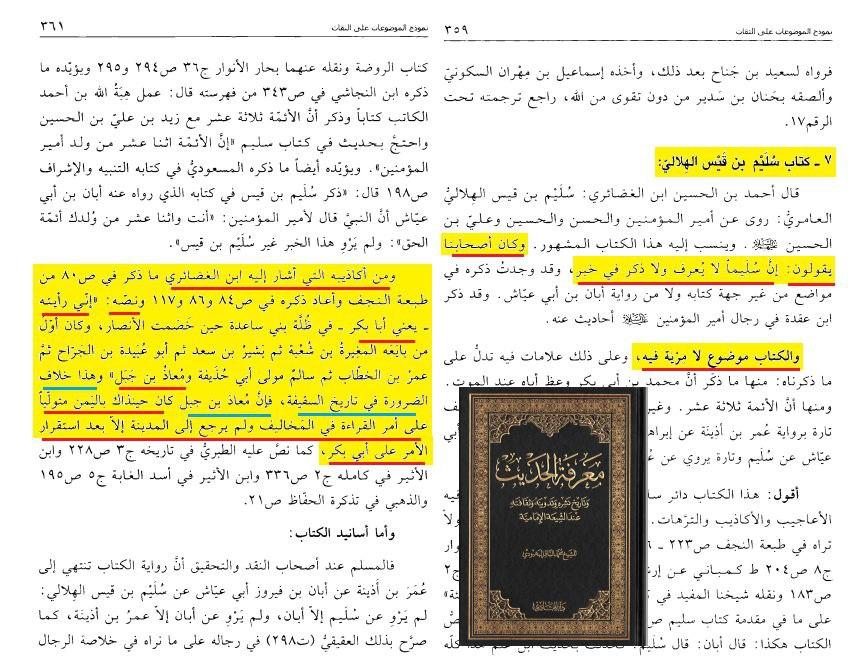 نموذج الموضوعات على الثقات ٣٥٩
فرواه لسعيد بن جَناح بعد ذلك، وأخذه إسماعيل بن مِهْران السكونيّ
وألصقه بحَنان بن سَدير من دون تقوى من الله، راجع ترجمته تحت
الرقم١٧.
٧ ـ كتاب سُلَيْم بن قَيْس الهِلاليّ:
قال أحمد بن الحسين ابن الغضائري: سُلَيْم بن قيس الهلاليُّ
العامريُّ: روى عن أمير المؤمنين والحسن والحسين وعليّ بن
الحسين . وينسب إليه هذا الكتاب المشهور. وكان أصحابنا
يقولون: إنَّ سُليماً لا يُعرف ولا ذكر في خبر، وقد وجدتُ ذكره في
مواضع من غير جهة كتابه ولا من رواية أبان بن أبي عيّاش. وقد ذكر
ابن عقدة في رجال أمير المؤمنين أحاديث عنه.
والكتاب موضوع لا مرْية فيه، وعلى ذلك علامات فيه تدلُّ على
ما ذكرناه: منها ما ذكَر أنَّ محمد بن أبي بكر وعظ أباه عند الموت.
ومنها أنَّ الأئمة ثلاثة عشر. وغير
تارة برواية عُمر بن أذينَة عن إبراه
عيّاش عن سُلَيم وتارة يروي عن عُ
أقول: هذا الكتاب دائر سا فيه
الأعاجيب والأكاذيب والترّهات. ولاً
تراه في طبعة النجف ص٢٢٣ ـ
ج٨ ص٢٠٤ ط كمباني عن إرش ج٢
ص١٨٣ ونقله شيخنا المفيد في ك
على ما في مقدمة كتاب سليم ص صُّ
الكتاب هكذا: قال أبان: قال سُلَيم: كلَّه
معرفة الحديث
وتاريخ نشره وتدوينه وثقافته
عند الشيعة الإمامية
نموذج الموضوعات على الثقات ٣٦١
كتاب الروضة ونقله عنهما بحار الأنوار ج٣٦ ص٢٩٤ و٢٩٥ ويؤيّده ما
ذكره ابن النجاشي في ص٣٤٣ من فهرسته قال: عمل هِبَةُ الله بن أحمد
الكاتب كتاباً وذكر أنَّ الأئمّة ثلاثة عشر مع زيد بن عليّ بن الحسين
واحتجَّ بحديث في كتاب سليم «إنَّ الأئمّة اثنا عشر من ولد أمير
المؤمنين». ويؤيّده أيضاً ما ذكره المسعوديُّ في كتابه التنبيه والإشراف
ص١٩٨ قال: «ذكر سُلَيم بن قيس في كتابه الذي رواه عنه أبان بن أبي
عيّاش أنَّ النبيَّ قال لأمير المؤمنين: «أنت واثنا عشر من وُلدك أئمّة
الحق»: ولم يَرْوِ هذا الخبر غير سُلَيْم بن قيس».
ومن أكاذيبه التي أشار إليه ابن الغضائري ما ذكر في ص٨٠ من
طبعة النجف وأعاد ذكره في ص٨٤ و٨٦ و١١٧ ونصّه: «إنّي رأيته
ـ يعني أبا بكر ـ في ظُلَّة بني ساعدة حين خَصَمت الأنصار، وكان أوَّل
من بايَعَه المغِيرةُ بن شُعْبة ثم بَشيرُ بن سعد ثم أبو عُبَيدة بن الجَرّاح ثمَّ
عمرُ بن الخطّاب ثم سالمُ مولى أبي حُذَيفة ومُعاذُ بن جَبَل» وهذا خلاف
الضرورة في تاريخ السقيفة، فإنَّ مُعاذ بن جبل كان حينذاك باليَمن متولّياً
على أمر القراءة في المَخاليف ولم يرجع إلى المدينة إلاّ بعد استقرار
الأمر على أبي بكر، كما نصَّ عليه الطبريُّ في تاريخه ج٣ ص٢٢٨ وابن
الأثير في كامله ج٢ ص٣٣٦ وابن الأثير في أسد الغابة ج٥ ص١٩٥
والذهبي في تذكرة الحفّاظ ص٢١.
وأما أسانيد الكتاب:
فالمسلم عند أصحاب النقد والتحقيق أنَّ رواية الكتاب تنتهي إلى
عُمَرَ بن أذينَة عن أبان بن فيروز أبي عيّاش عن سُلَيْم بن قيس الهلالي:
لم يَرْوِ عن سُلَيم إلاّ أبان، ولم يَرْوِ عن أبان إلاّ عمرُ بن أذينَة، كما
صرَّح بذلك العقيقيُّ (ت٢٩٨) في رجاله على ما تراه في خلاصة الرجال